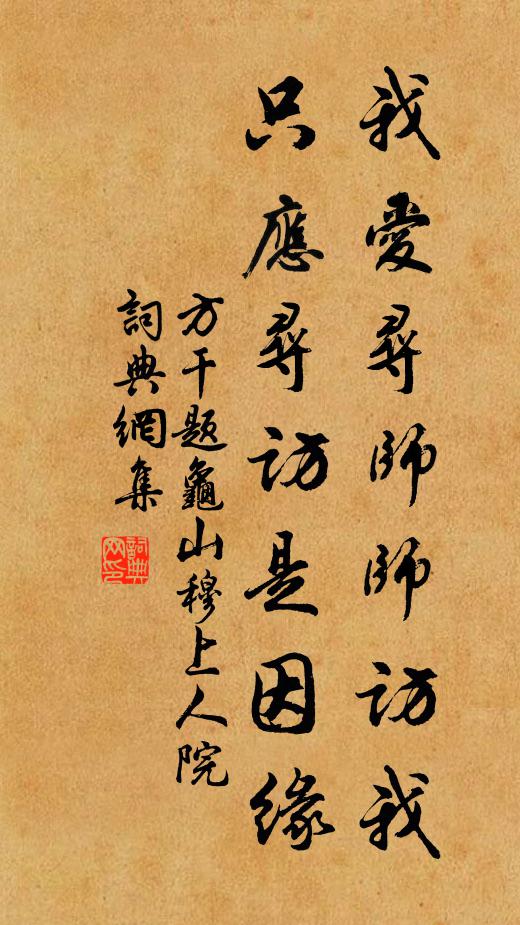 我愛尋師師訪我
只應尋訪是因緣
方干题龜山穆上人院
詞典網集
詞典
网印